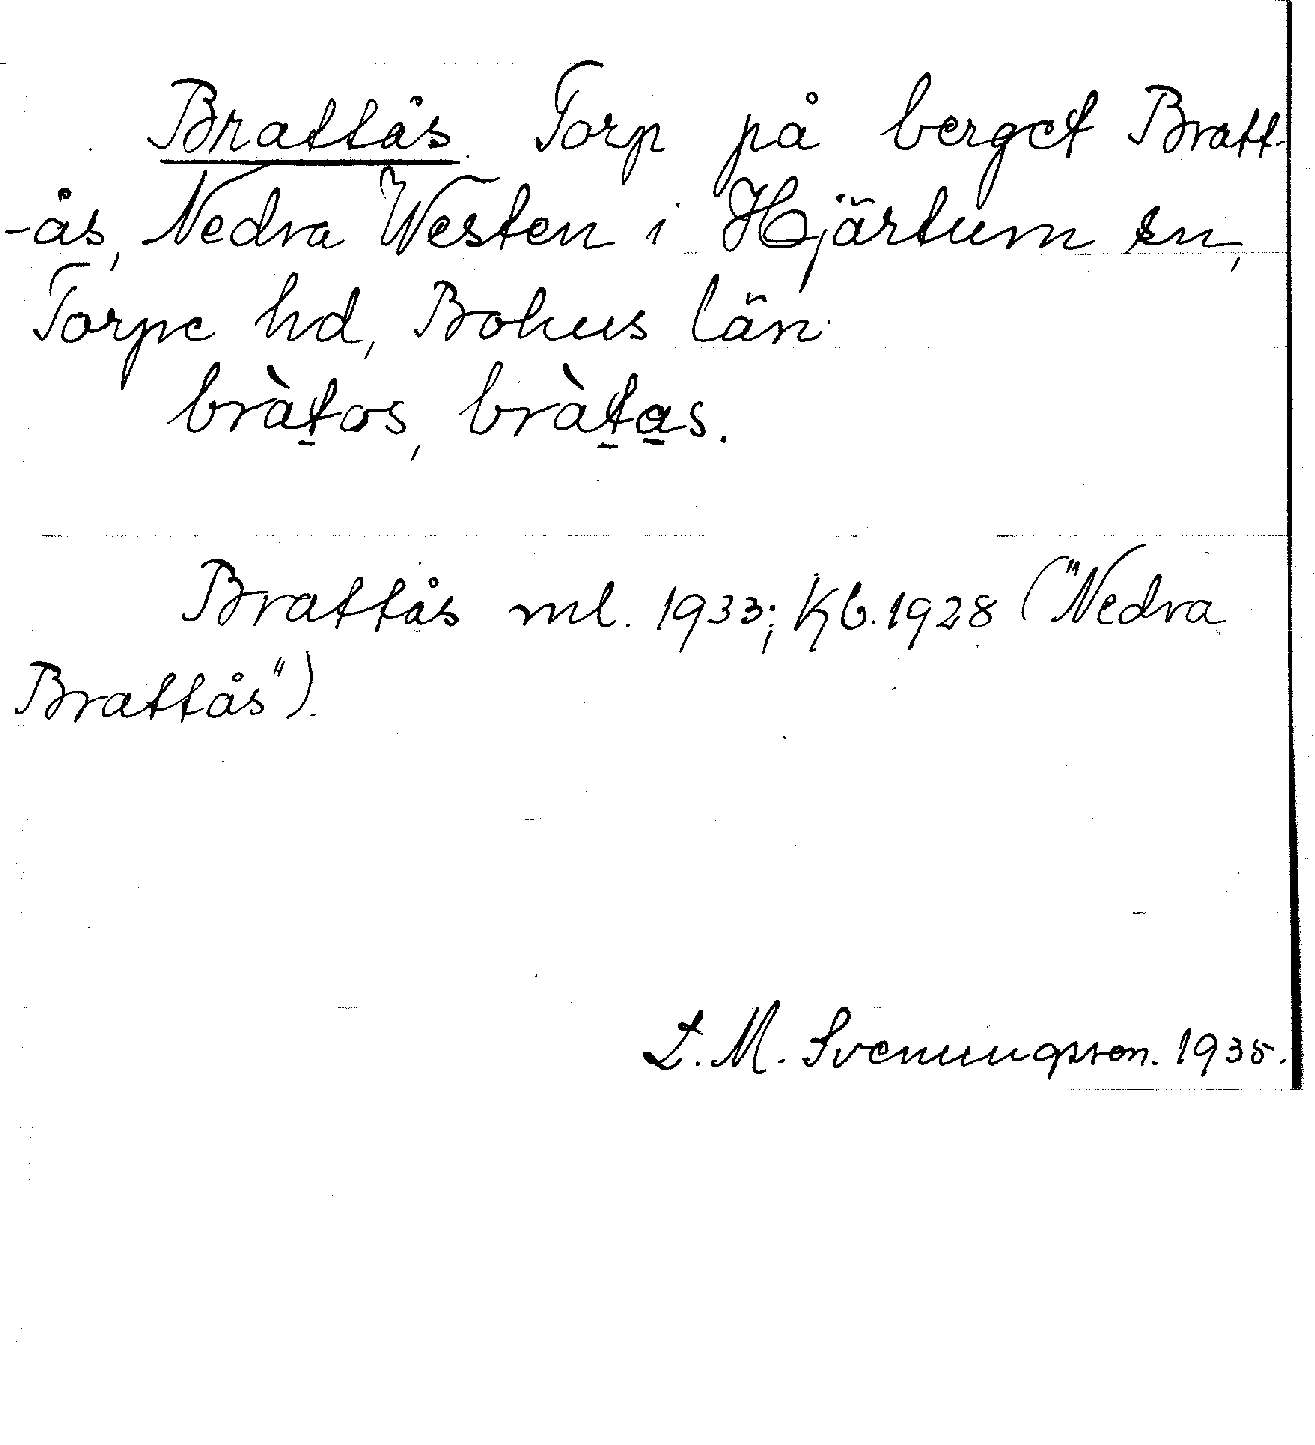 Brattås. Torp på berget Bratt-
-ås, Nedra Westen i Hjärtum sn,
Torpe hd, Bohus län.
bràt̲os, bràt̲a̲s.
Brattås ml. 1933; Kb. 1928 ("Nedra
Brattås").
D. M. Svenungsson. 1935.